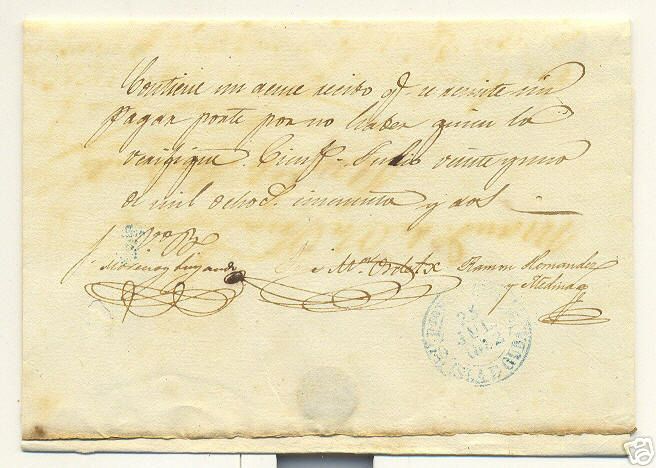 Contiene un acuse recibo q. se remite sin
pagar porte por no haber quien lo
verifique. Cienf. Julio veinte y uno
de mil ochoc. cincuenta y dos
M. Ordetx Ramon Hernandez
y Medina
ISLA DE CUBA